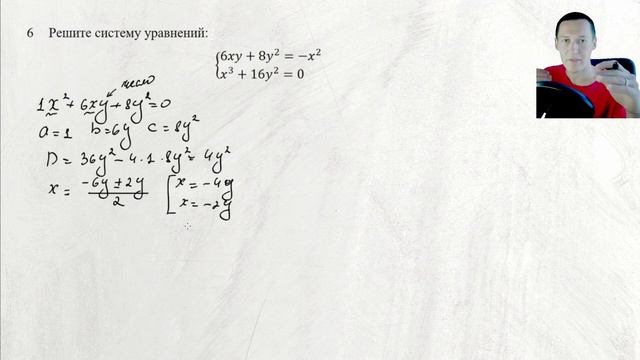 6 Решите систему уравнений:
{6xy + 8y² = −x²
x³ + 16y² = 0
число
1x² + 6xy + 8y² = 0
a = 1 b = 6y c = 8y²
D = 36y² − 4·1·8y² = 4y²
x = (−6y ± 2y)/2 [x = −4y
x = −2y